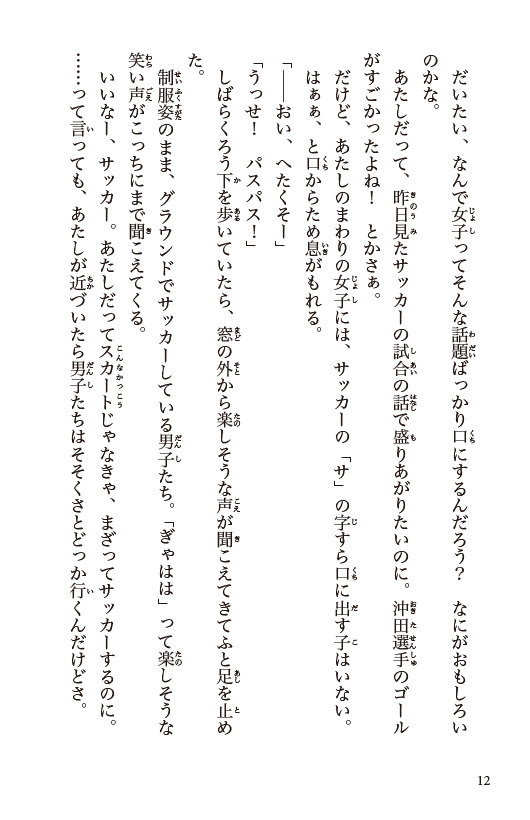 だいたい、なんで女子ってそんな話題ばっかり口にするんだろう？　なにがおもしろい
のかな。
あたしだって、昨日見たサッカーの試合の話で盛りあがりたいのに。沖田選手のゴール
がすごかったよね！　とかさぁ。
だけど、あたしのまわりの女子には、サッカーの「サ」の字すら口に出す子はいない。
はぁぁ、と口からため息がもれる。
「――おい、へたくそー」
「うっせ！　パスパス！」
しばらくろう下を歩いていたら、窓の外から楽しそうな声が聞こえてきてふと足を止め
た。
制服姿のまま、グラウンドでサッカーしている男子たち。「ぎゃはは」って楽しそうな
笑い声がこっちにまで聞こえてくる。
いいなー、サッカー。あたしだってスカートじゃなきゃ、まざってサッカーするのに。
……って言っても、あたしが近づいたら男子たちはそそくさとどっか行くんだけどさ。
12